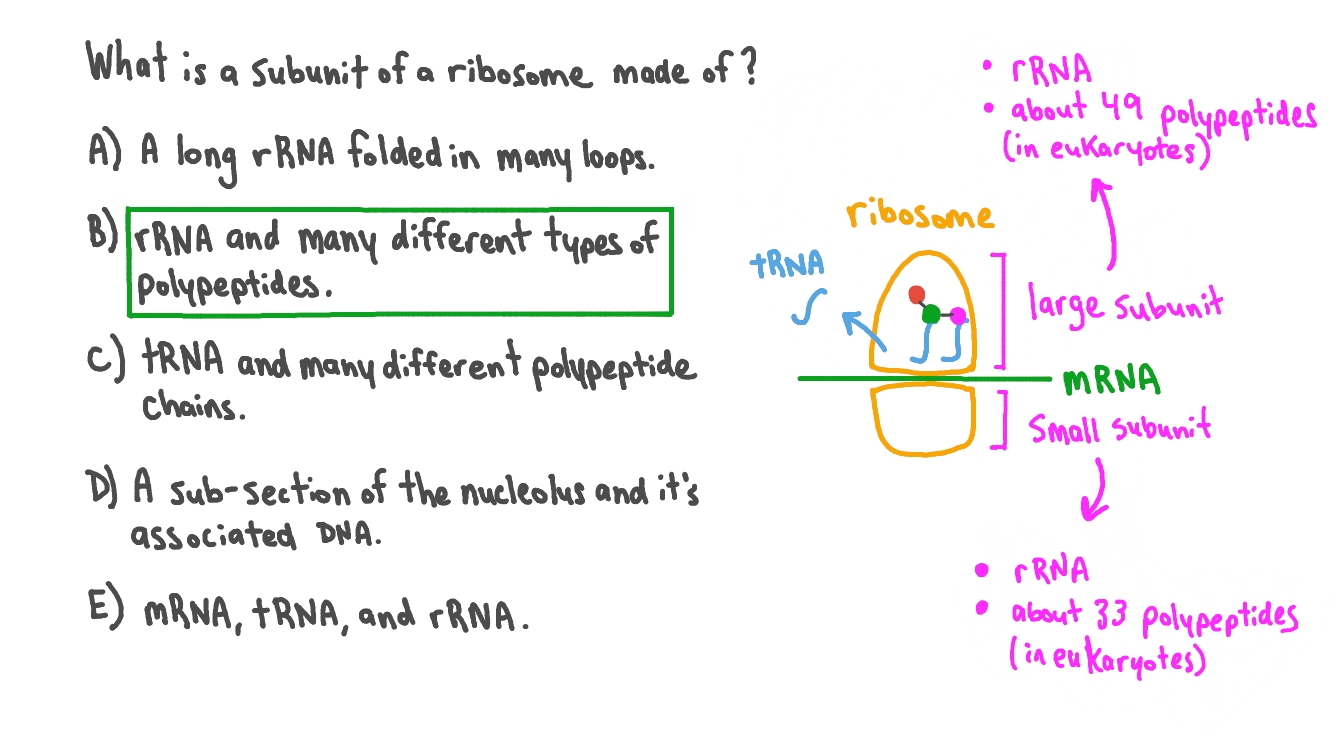 What is a subunit of a ribosome made of?
A) A long rRNA folded in many loops.
B) rRNA and many different types of
polypeptides.
C) tRNA and many different polypeptide
chains.
D) A sub-section of the nucleolus and it's
associated DNA.
E) mRNA, tRNA, and rRNA.
• rRNA
• about 49 polypeptides
(in eukaryotes)
ribosome
tRNA
large subunit
mRNA
Small subunit
• rRNA
• about 33 polypeptides
(in eukaryotes)